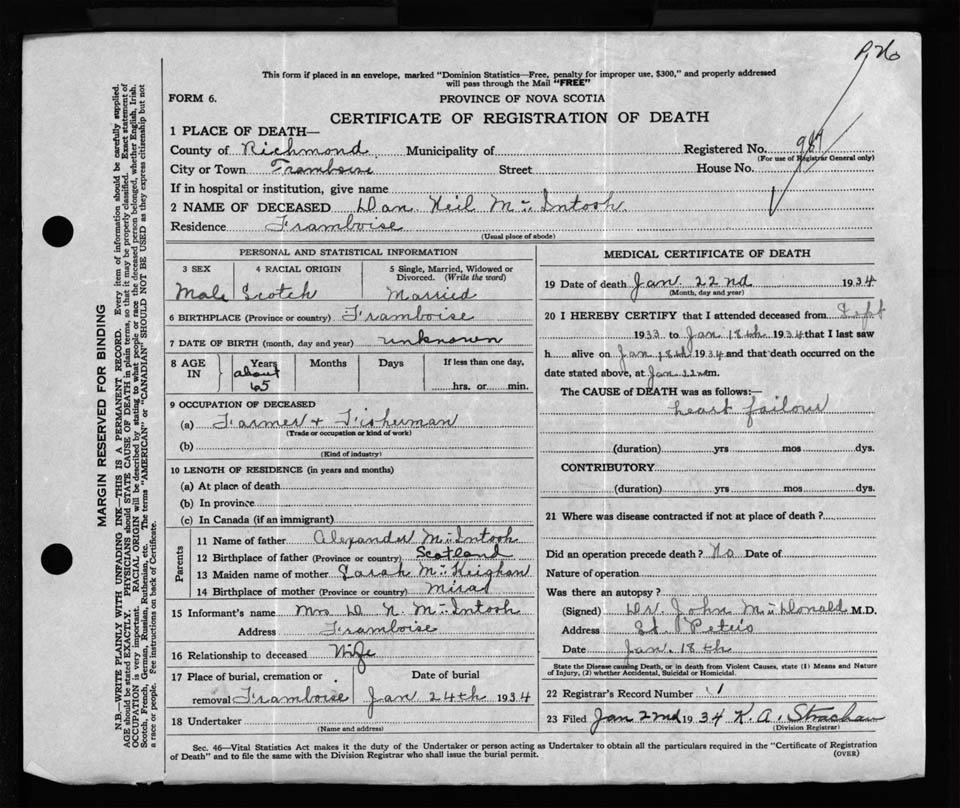 P, 26
This form if placed in an envelope, marked "Dominion Statistics—Free, penalty for improper use, $300," and properly addressed
will pass through the Mail "FREE"
FORM 6.
PROVINCE OF NOVA SCOTIA
CERTIFICATE OF REGISTRATION OF DEATH
1 PLACE OF DEATH—
County of Richmond Municipality of Registered No. 989
(For use of Registrar General only)
City or Town Framboise Street House No.
If in hospital or institution, give name
2 NAME OF DECEASED Dan Neil Mc Intosh
Residence Framboise
(Usual place of abode)
PERSONAL AND STATISTICAL INFORMATION
3 SEX 4 RACIAL ORIGIN 5 Single, Married, Widowed or Divorced. (Write the word)
Male Scotch Married
6 BIRTHPLACE (Province or country) Framboise
7 DATE OF BIRTH (month, day and year) unknown
8 AGE IN Years Months Days If less than one day,
about 65 hrs. or min.
9 OCCUPATION OF DECEASED
(a) Farmer + Fisherman
(Trade or occupation or kind of work)
(b)
(Kind of industry)
10 LENGTH OF RESIDENCE (in years and months)
(a) At place of death
(b) In province
(c) In Canada (if an immigrant)
Parents
11 Name of father Alexander Mc Intosh
12 Birthplace of father (Province or country) Scotland
13 Maiden name of mother Sarah Mc Keighan
14 Birthplace of mother (Province or country) Mira
15 Informant's name Mrs D N. Mc Intosh
Address Framboise
16 Relationship to deceased Wife
17 Place of burial, cremation or Date of burial
removal Framboise Jan 24th 1934
18 Undertaker
(Name and address)
MEDICAL CERTIFICATE OF DEATH
19 Date of death Jan. 22nd 1934
(Month, day and year)
20 I HEREBY CERTIFY that I attended deceased from Sept
1933 to Jan 18th 1934 that I last saw
h alive on Jan 18th 1934 and that death occurred on
date stated above, at Jan 22 m.
The CAUSE of DEATH was as follows:—
heart failour
(duration) yrs mos dys.
CONTRIBUTORY
(duration) yrs mos dys.
21 Where was disease contracted if not at place of death?
Did an operation precede death? No Date of
Nature of operation
Was there an autopsy?
(Signed) Dr. John Mc Donald M.D.
Address St. Peters
Date Jan. 18th
State the Disease causing Death, or in death from Violent Causes, state (1) Means and Nature
of Injury, (2) whether Accidental, Suicidal or Homicidal.
22 Registrar's Record Number 1
23 Filed Jan 22nd 1934 K. A. Strachan
(Division Registrar)
Sec. 46—Vital Statistics Act makes it the duty of the Undertaker or person acting as Undertaker to obtain all the particulars required in the "Certificate of Registration
of Death" and to file the same with the Division Registrar who shall issue the burial permit.
(OVER)
MARGIN RESERVED FOR BINDING
N.B.—WRITE PLAINLY WITH UNFADING INK—THIS IS A PERMANENT RECORD. Every item of information should be carefully supplied.
AGE should be stated EXACTLY. PHYSICIANS should STATE CAUSE OF DEATH in plain terms, so that it may be properly classified. Exact statement of
OCCUPATION is very important. RACIAL ORIGIN will be described by stating to what people or race the deceased person belonged, whether English, Irish,
Scotch, French, German, Russian, Ruthenian, etc. The terms "AMERICAN" or "CANADIAN" SHOULD NOT BE USED as they express citizenship but not
a race or people. See instructions on back of Certificate.